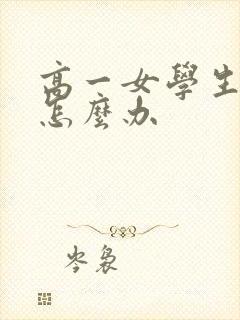 高一女學生
怎麼办
岑袅